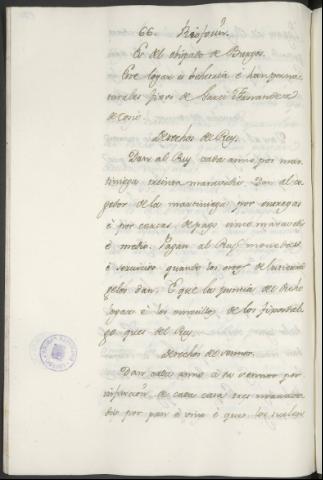 66. Rioforin.
Es del obispado de Burgos.
Este logar es behetria é han por na-
turales fijos de Garci Fernandez
Derechos del Rey.
Dan al Rey cada anno por mar-
tiniega treinta maravedis. Dan al co-
gedor de la martiniega por entregas
é por cartas de pago cinco maravedis
é medio. Pagan al Rey monedas
é servicios quando los otros de la tierra
gelos dan. E que la justicia del dicho
logar é los omecillos de los fijosdal-
go que es del Rey.
Derechos del sennor.
Dan cada anno á su sennor por
infurcion de cada casa tres marave-
dis por pan é vino é que los suelen